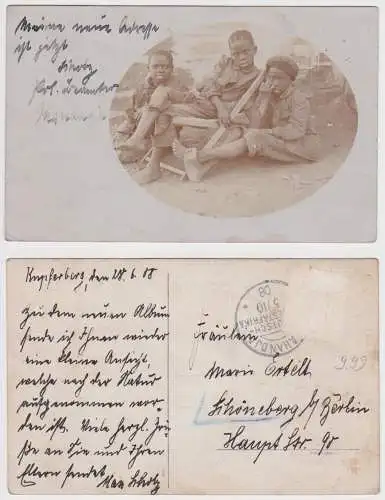 Meine neue Adresse
ist jetzt
Kupferberg, den 28.6.08
Zu dem neuen Album
sende ich Ihnen wieder
eine kleine Ansicht,
welche nach der Natur
aufgenommen wor-
den ist. Viele herzl. Grü-
ße an Sie und Ihren
Eltern sendet
Max
5/10
08
Fräulein
Marie Ertelt
Schöneberg b/ Berlin
Haupt Str. 90
9.99